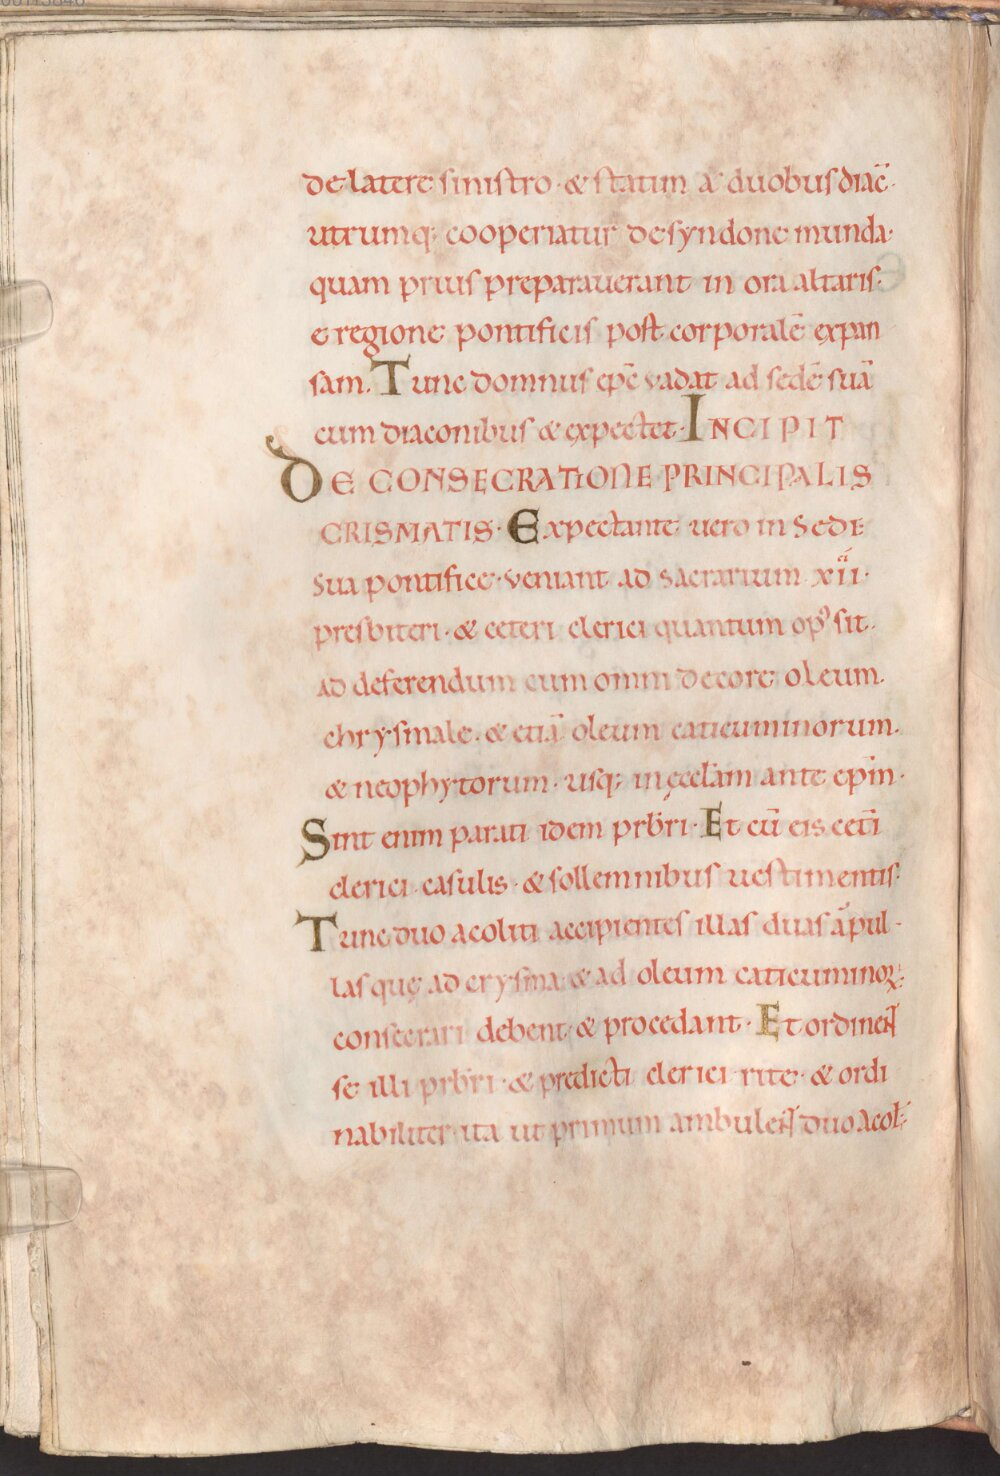 de latere sinistro · & statim a duobus diac̄ ·
utrumq; cooperiatur de syndone munda ·
quam prius preparauerant in ora altaris ·
e regione pontificis post corporalē expan
sam. Tunc domnus ep̄c vadat ad sedē suā
cum diaconibus & expectet · INCIPIT
DE CONSECRATIONE PRINCIPALIS
CRISMATIS · Expectante uero in sede
sua pontifice · veniant ad sacrarium xii ·
presbiteri · & ceteri clerici quantum opꝰ sit ·
ad deferendum cum omni decore oleum
chrysmale · & etiā oleum caticuminorum ·
& neophytorum · usq; in ęcclam ante ep̄m ·
Sint enim parati idem prb̄ri · Et cū eis cet̄i
clerici casulis · & sollemnibus uestimentis ·
Tunc duo acoliti accipientes illas duas āpul ·
las quę ad crysma & ad oleum caticuminoꝝ ·
consecrari debent · & procedant · Et ordinent
se illi prb̄ri · & predicti clerici rite · & ordi
nabiliter · ita ut primum ambulent duo acol̄ ·